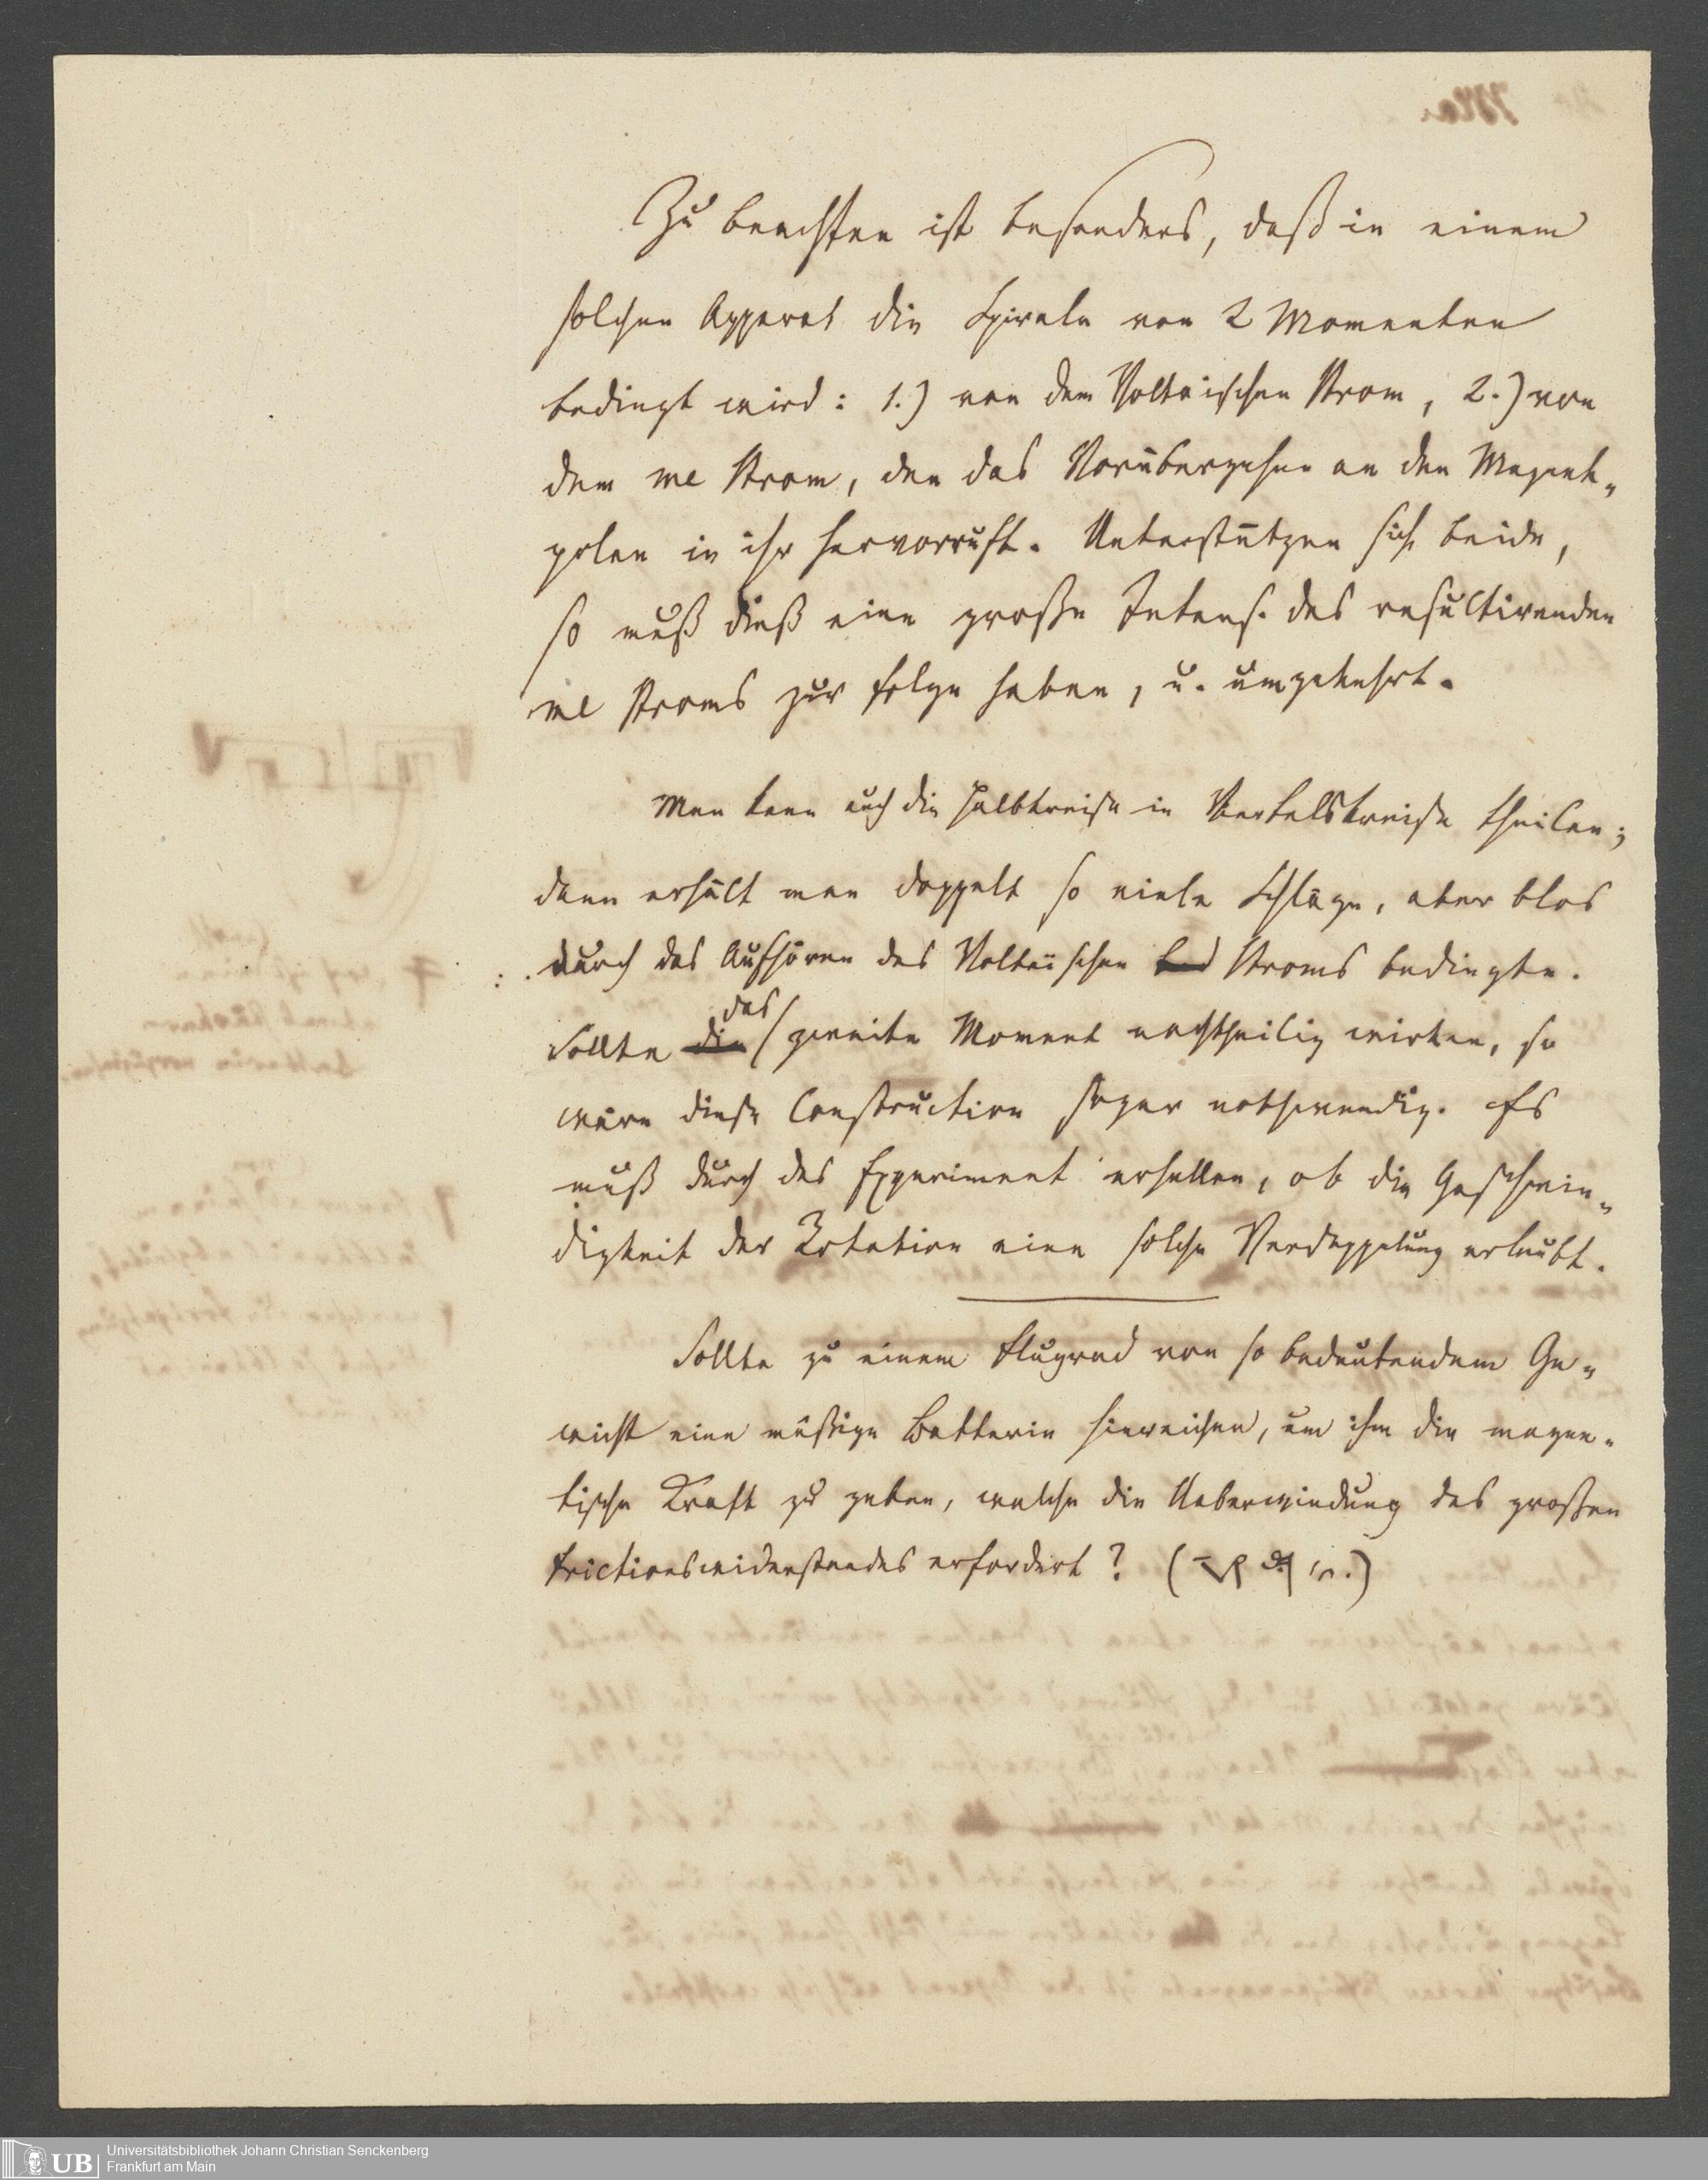 Zu beachten ist besonders, daß in einem
solchen Apparat die Spirale von 2 Momenten
bedingt wird: 1.) von dem Voltaischen Strom, 2.) von
dem me Strom, den das Vorübergehen an den Magnet-
polen in ihr hervorruft. Unterstützen sich beide,
so muß dieß eine große Intens. des resultirenden
me Stroms zur Folge haben, u. umgekehrt.
Man kann auch die Halbkreise in Viertelskreise theilen;
dann erhält man doppelt so viele Schläge, aber blos
durch das Aufhören des Voltaischen Stroms bedingte.
das
Sollte die zweite Moment nachtheilig wirken, so
wäre diese Construction sogar nothwendig. Es
muß durch das Experiment erhellen, ob die Geschwin-
digkeit der Rotation eine solche Verdoppelung erlaubt.
Sollte zu einem Flugrad von so bedeutendem Ge-
wicht eine mäßige Batterie hinreichen, um ihm die magne-
tische Kraft zu geben, welche die Ueberwindung des großen
Frictionswiderstandes erfordert?
Universitätsbibliothek Johann Christian Senckenberg
UB Frankfurt am Main